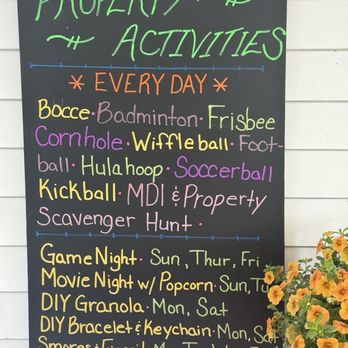 PROPERTY
ACTIVITIES
* EVERY DAY *
Bocce · Badminton · Frisbee
Cornhole · Wiffleball · Foot-
ball · Hulahoop · Soccerball
Kickball · MDI & Property
Scavenger Hunt ·
Game Night · Sun, Thur, Fri
Movie Night w/ Popcorn · Sun, Tu
DIY Granola · Mon, Sat
DIY Bracelet & Keychain · Mon,
Smores &